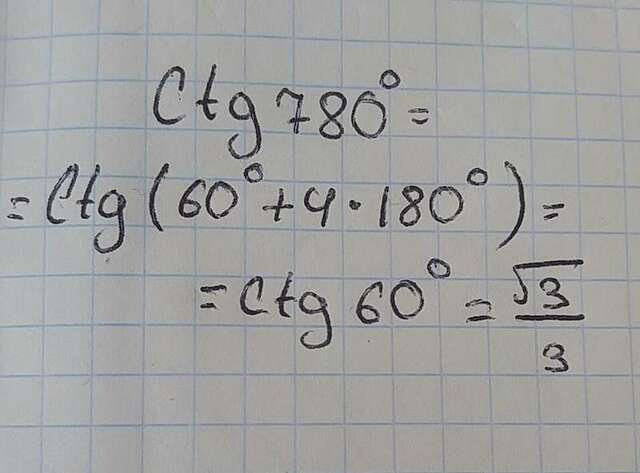 Ctg 780° =
= Ctg (60° + 4 · 180°) =
= Ctg 60° = √3/3